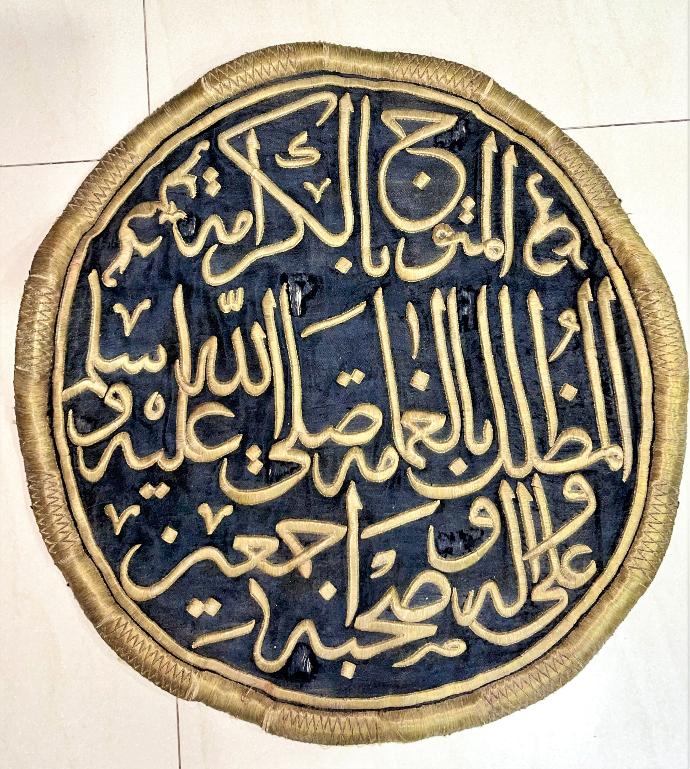 المتوج بالكرامة
المظلل بالغمامة صلى الله عليه وسلم
وعلى اله وصحبه اجمعين